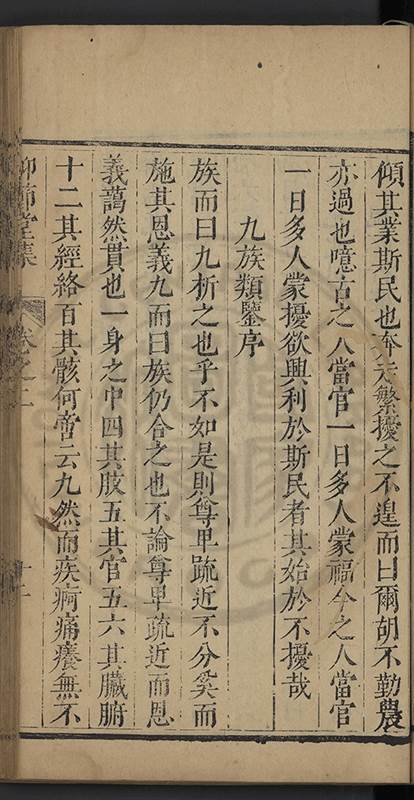 傾其業斯民也奔走繁擾之不遑而曰爾胡不勤農
亦過也噫古之人當官一日多人蒙福今之人當官
一日多人蒙擾欲興利於斯民者其始於不擾哉
九族類鑒序
族而曰九析之也乎不如是則尊卑疏近不分奚而
施其恩義九而曰族仍合之也不論尊卑疏近而恩
義藹然貫也一身之中四其肢五其官五六其臟腑
十二其經絡百其骸何啻云九然而疾痾痛癢無不
仰節堂集
卷之二
十二